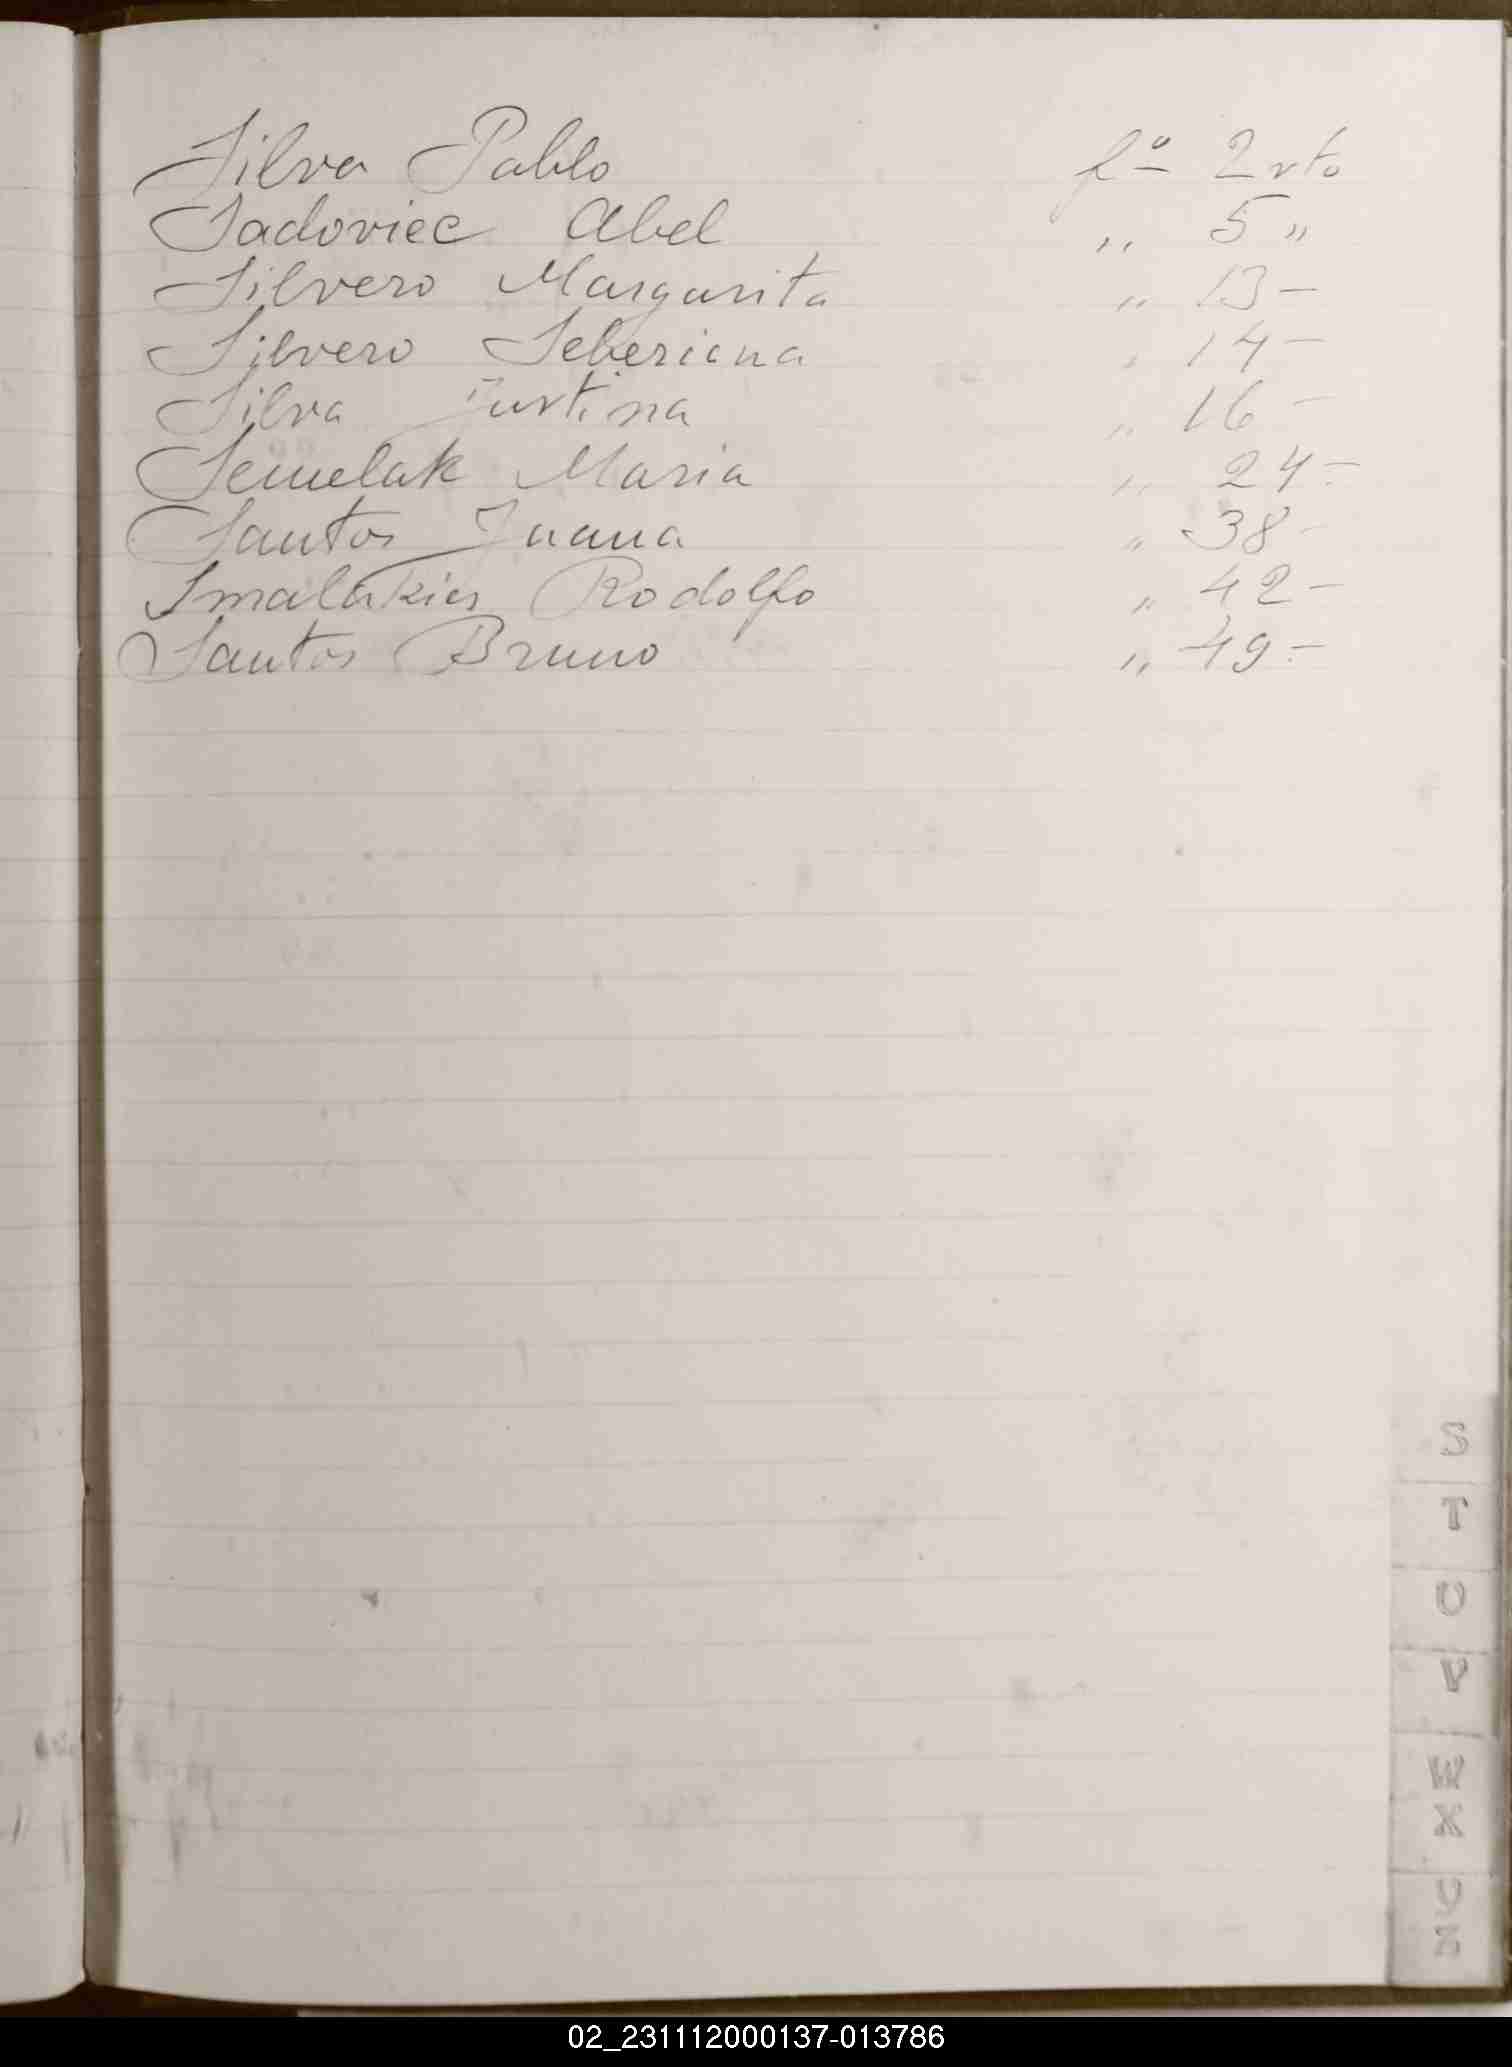 Silva Pablo fº 2 vto
Sadoviec Abel " 5 "
Silvero Margarita " 13 -
Silvero Seberiana " 14 -
Silva Justina " 16 -
Semelak Maria " 24 -
Santos Juana " 38 -
Rodolfo " 42 -
Santos Bruno " 49 -
S
T
U
V
W
X
Y
Z
02_231112000137-013786